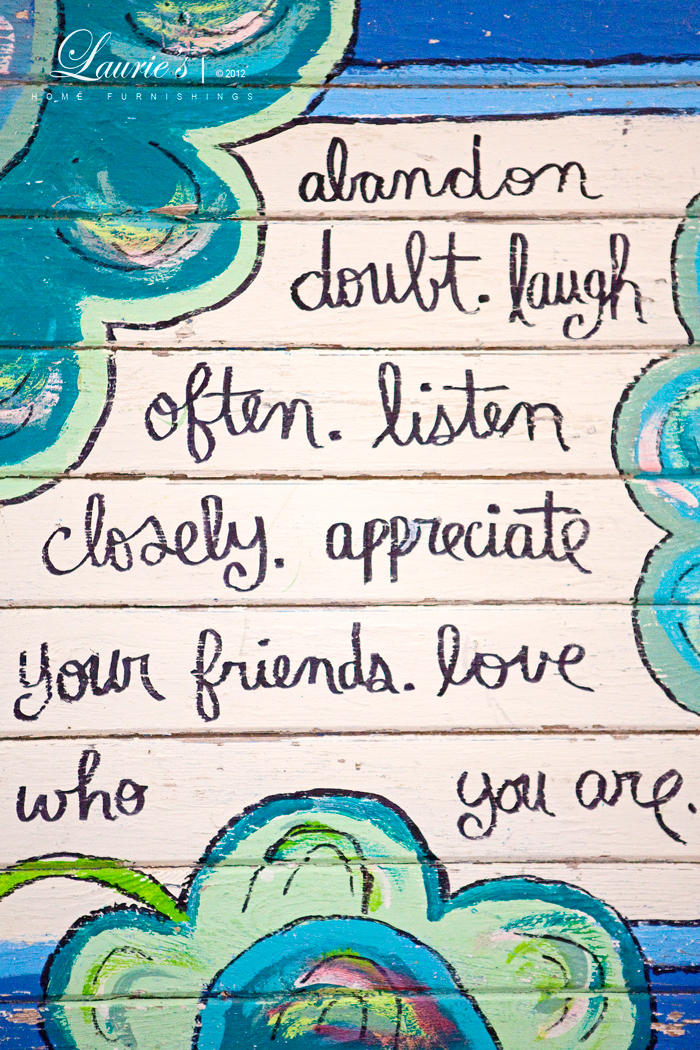 Laurie's | © 2012
HOME FURNISHINGS
abandon
doubt. laugh
often. listen
closely. appreciate
your friends. love
who you are.